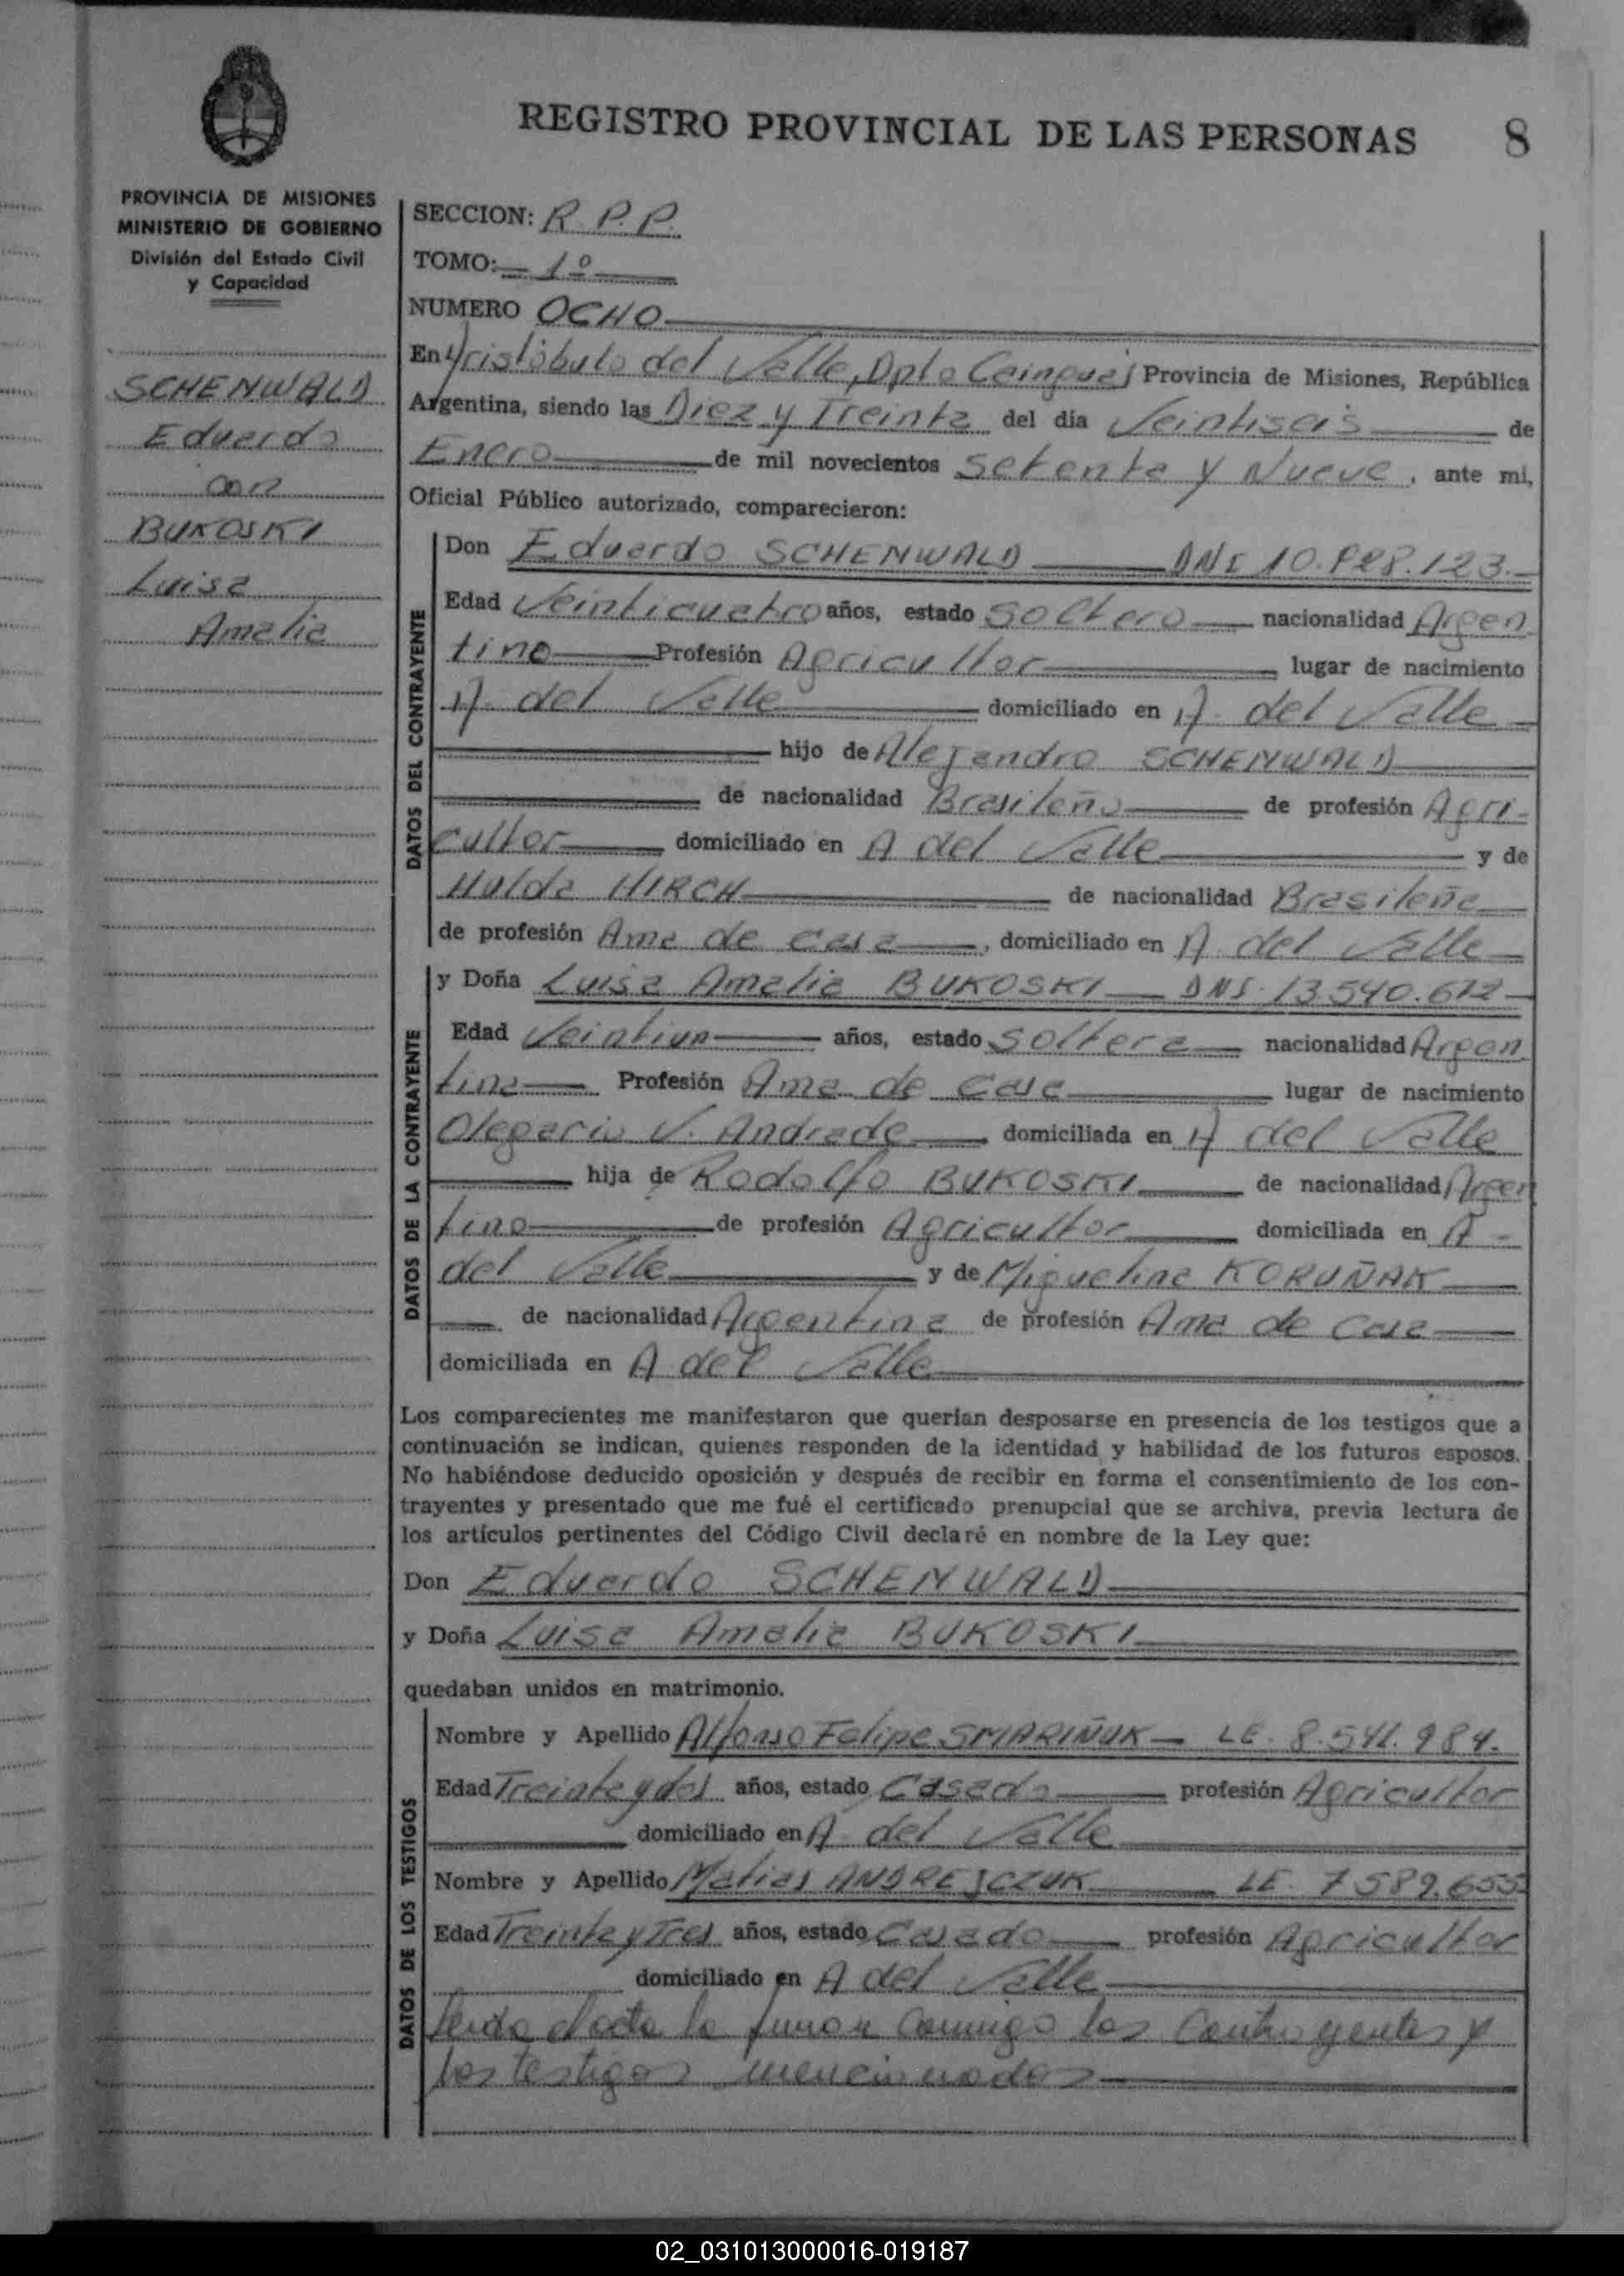 REGISTRO PROVINCIAL DE LAS PERSONAS 8
PROVINCIA DE MISIONES
MINISTERIO DE GOBIERNO
División del Estado Civil
y Capacidad
SCHENWALD
Eduardo
con
BUKOSKI
Luisa
Amalia
SECCION: R.P.P.
TOMO: 1º
NUMERO OCHO
En Aristóbulo del Valle, Dpto Cainguás Provincia de Misiones, República
Argentina, siendo las Diez y Treinta del día Veintiseis de
Enero de mil novecientos Setenta y Nueve, ante mi,
Oficial Público autorizado, comparecieron:
DATOS DEL CONTRAYENTE
Don Eduardo SCHENWALD DNI 10.828.123.
Edad Veinticuatro años, estado Soltero nacionalidad Argen
tino Profesión Agricultor lugar de nacimiento
A. del Valle domiciliado en A. del Valle
hijo de Alejandro SCHENWALD
de nacionalidad Brasileño de profesión Agri-
cultor domiciliado en A del Valle y de
Hulda HIRCH de nacionalidad Brasileña
de profesión Ama de casa, domiciliado en A. del Valle
DATOS DE LA CONTRAYENTE
y Doña Luisa Amalia BUKOSKI DNI. 13.540.612
Edad Veintiun años, estado Soltera nacionalidad Argen
tina Profesión Ama de Casa lugar de nacimiento
Olegario V. Andrade domiciliada en A del Valle
hija de Rodolfo BUKOSKI de nacionalidad Argen
tino de profesión Agricultor domiciliada en A -
del Valle y de Miguelina KORUÑAK
de nacionalidad Argentina de profesión Ama de Casa
domiciliada en A del Valle
Los comparecientes me manifestaron que querían desposarse en presencia de los testigos que a
continuación se indican, quienes responden de la identidad y habilidad de los futuros esposos.
No habiéndose deducido oposición y después de recibir en forma el consentimiento de los con-
trayentes y presentado que me fué el certificado prenupcial que se archiva, previa lectura de
los artículos pertinentes del Código Civil declaré en nombre de la Ley que:
Don Eduardo SCHENWALD
y Doña Luisa Amalia BUKOSKI
quedaban unidos en matrimonio.
DATOS DE LOS TESTIGOS
Nombre y Apellido Alfonso Felipe SMARIÑUK - LE. 8.541.984.
Edad Treinta y dos años, estado Casado profesión Agricultor
domiciliado en A. del Valle
Nombre y Apellido Matias ANDREJCZUK LE. 7.589.655
Edad Treinta y Tres años, estado Casado profesión Agricultor
domiciliado en A del Valle
Leída el acta la firman conmigo los Contrayentes y
los testigos mencionados
02_031013000016-019187